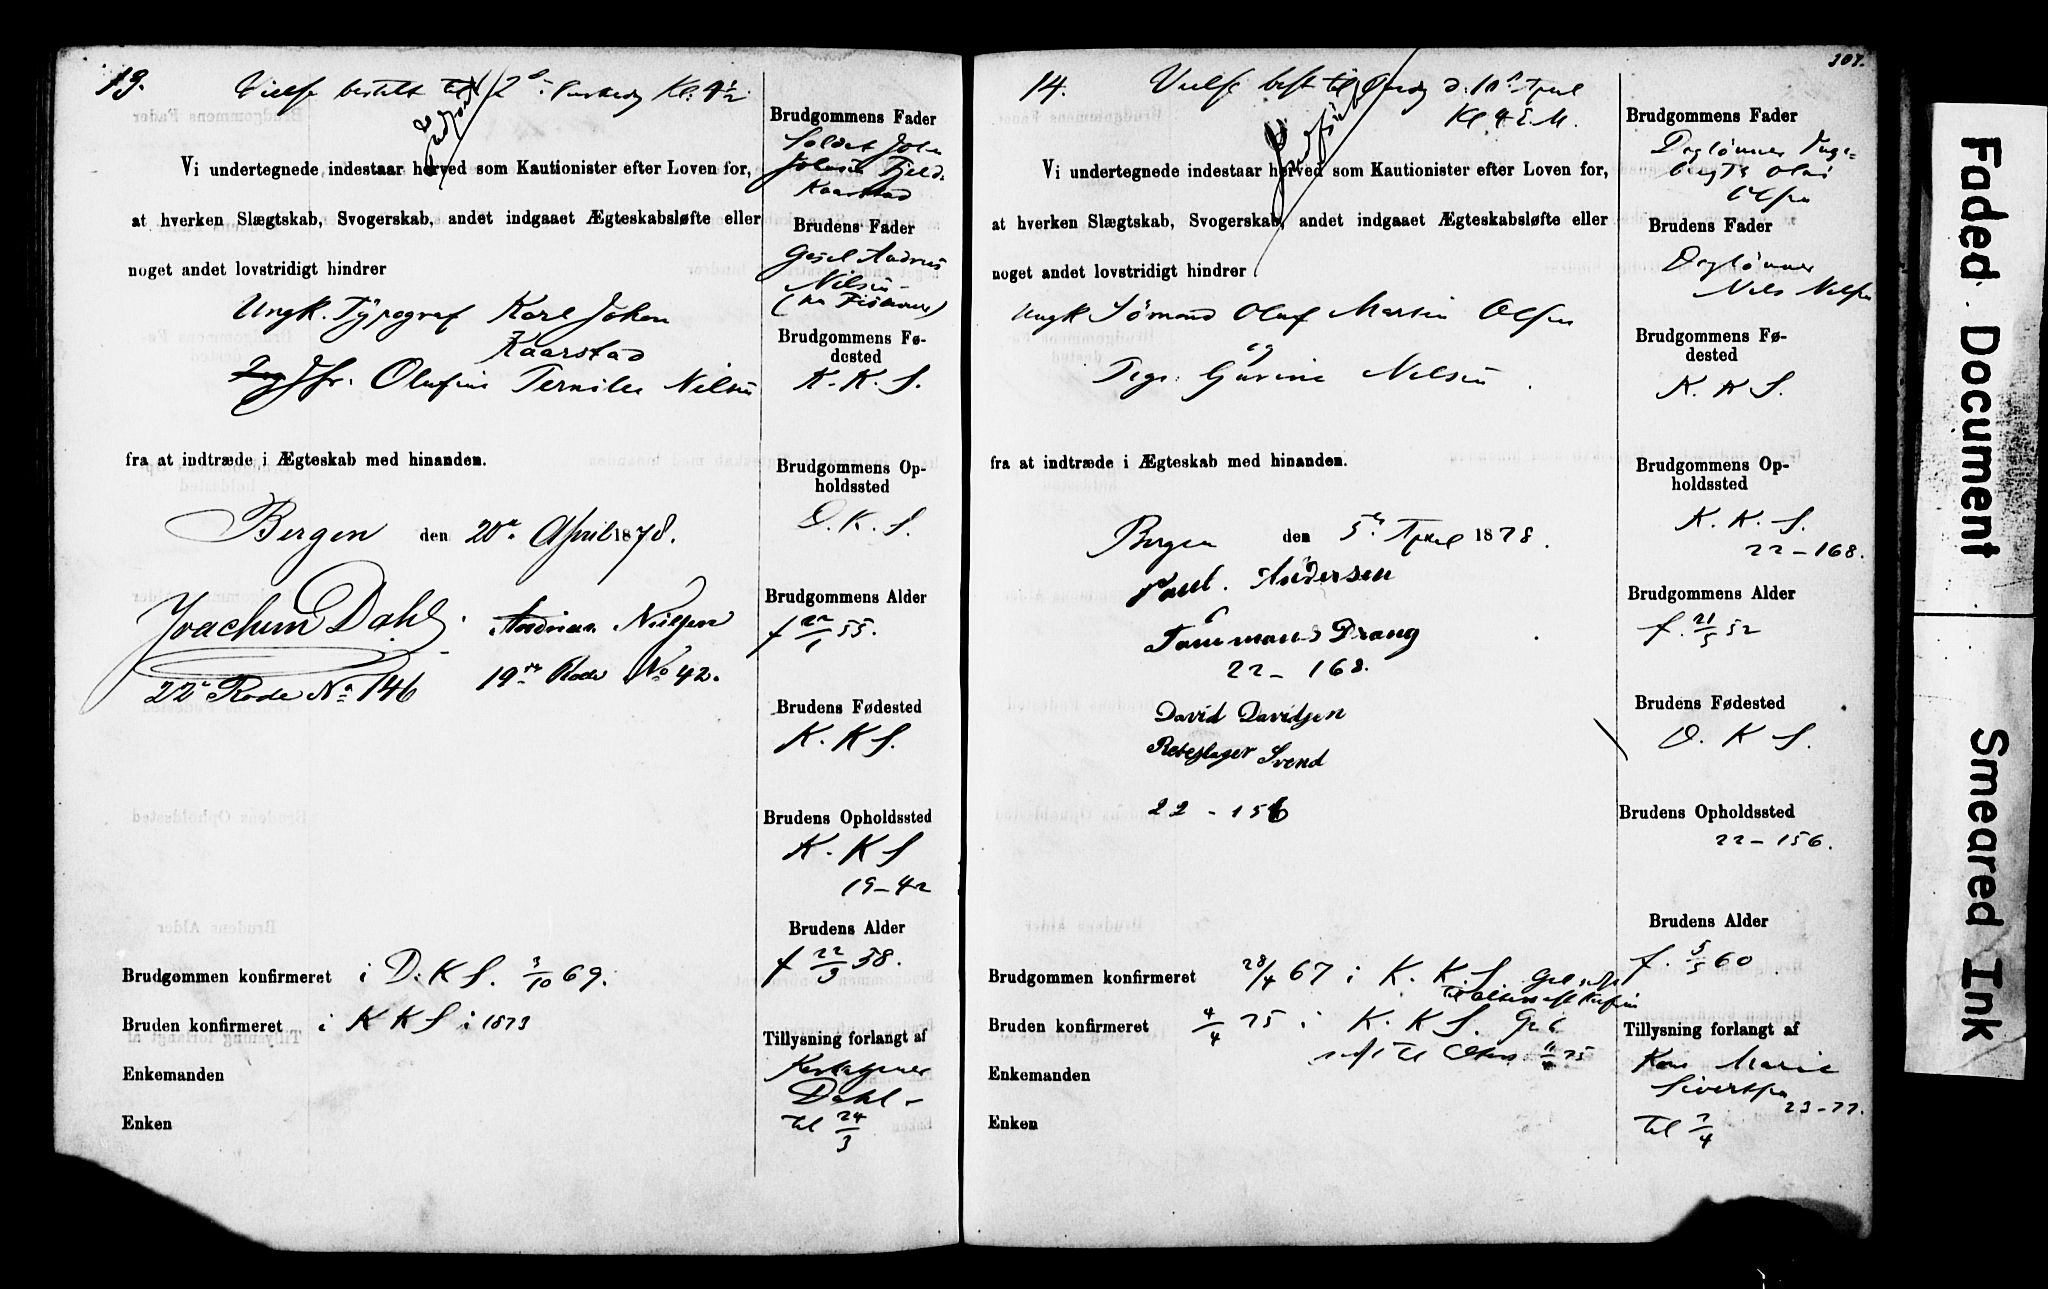 13.
Vielse bestilt til 2d Paaskedag Kl. 4½
Vi undertegnede indestaar herved som Kautionister efter Loven for,
at hverken Slægtskab, Svogerskab, andet indgaaet Ægteskabsløfte eller
noget andet lovstridigt hindrer
Ungk. Typograf Karl Johan
Kaarstad
Jfr. Olufine Nilsen
fra at indtræde i Ægteskab med hinanden.
Bergen den 20de April 1878.
Joachim Dahl.
22de Rode No 146
Andreas Nielsen
19de Rode No 42.
Brudgommen konfirmeret i D. K S. 3/10 69.
Bruden konfirmeret i K K S i 1873
Enkemanden
Enken
Brudgommens Fader
Soldat John
Kaarstad
Brudens Fader
Andreas
Nilsen
Brudgommens Fø-
dested
K. K. S.
Brudgommens Op-
holdssted
D. K. S.
Brudgommens Alder
f 22/1 55.
Brudens Fødested
K. K S.
Brudens Opholdssted
K. K S
19-42
Brudens Alder
f 22/3 58.
Tillysning forlangt af
Dahl
til 24/3
307.
14.
Vielse best til Onsdag d. 10de April
Kl 4 E. M.
Vi undertegnede indestaar herved som Kautionister efter Loven for,
at hverken Slægtskab, Svogerskab, andet indgaaet Ægteskabsløfte eller
noget andet lovstridigt hindrer
Ungk Sömand Oluf Martin Olsen
og
Pige Gurine Nilsen
fra at indtræde i Ægteskab med hinanden.
Bergen den 5te April 1878.
Paul. Andersen
Tömmermands Dræng
22 - 168.
David Davidsen
Rebeslager Svend
22 - 156
Brudgommen konfirmeret 28/4 67 i K. K. S
Bruden konfirmeret 4/4 75 i K. K S.
Enkemanden
Enken
Brudgommens Fader
Daglønner
Ole
Olsen
Brudens Fader
Daglønner
Nils Nilsen
Brudgommens Fø-
dested
K. K S.
Brudgommens Op-
holdssted
K. K. S.
22-168.
Brudgommens Alder
f. 21/5 52
Brudens Fødested
D. K S.
Brudens Opholdssted
22-156.
Brudens Alder
f. 5/5 60
Tillysning forlangt af
Kone Marie
Sivertsen
23-77.
til 7/4
Faded Document
Smeared Ink